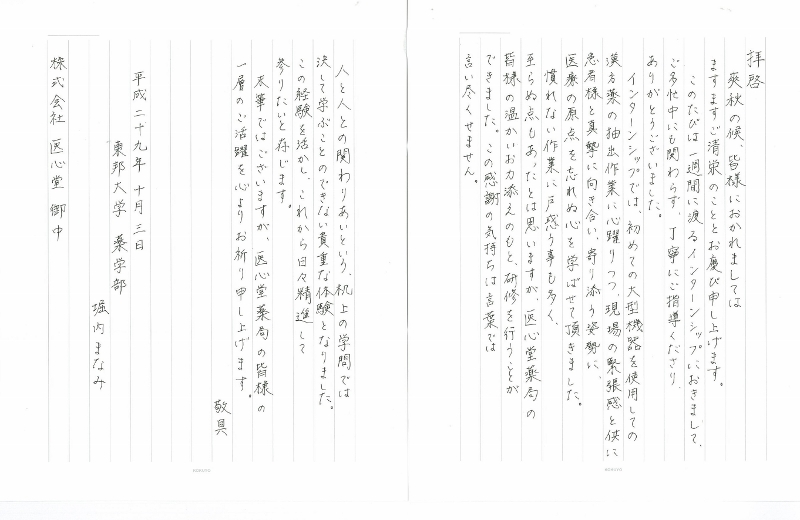 拝啓
爽秋の候、皆様におかれましては
ますますご清栄のこととお慶び申し上げます。
このたびは一週間に渡るインターンシップにおきまして、
ご多忙中にも関わらず、丁寧にご指導くださり、
ありがとうございました。
インターンシップでは、初めての大型機器を使用しての
漢方薬の抽出作業に心躍りつつ、現場の緊張感と供に
患者様と真摯に向き合い、寄り添う姿勢に、
医療の原点を忘れぬ心を学ばせて頂きました。
慣れない作業に戸惑う事も多く、
至らぬ点もあったとは思いますが、医心堂薬局の
皆様の温かいお力添えのもと、研修を行うことが
できました。この感謝の気持ちは言葉では
言い尽くせません。
人と人との関わりあいという、机上の学問では
決して学ぶことのできない貴重な体験となりました。
この経験を活かし、これから日々精進して
参りたいと存じます。
末筆ではございますが、医心堂薬局の皆様の
一層のご活躍を心よりお祈り申し上げます。
敬具
平成二十九年十月三日
東邦大学 薬学部
堀内まなみ
株式会社 医心堂 御中
KOKUYO
KOKUYO